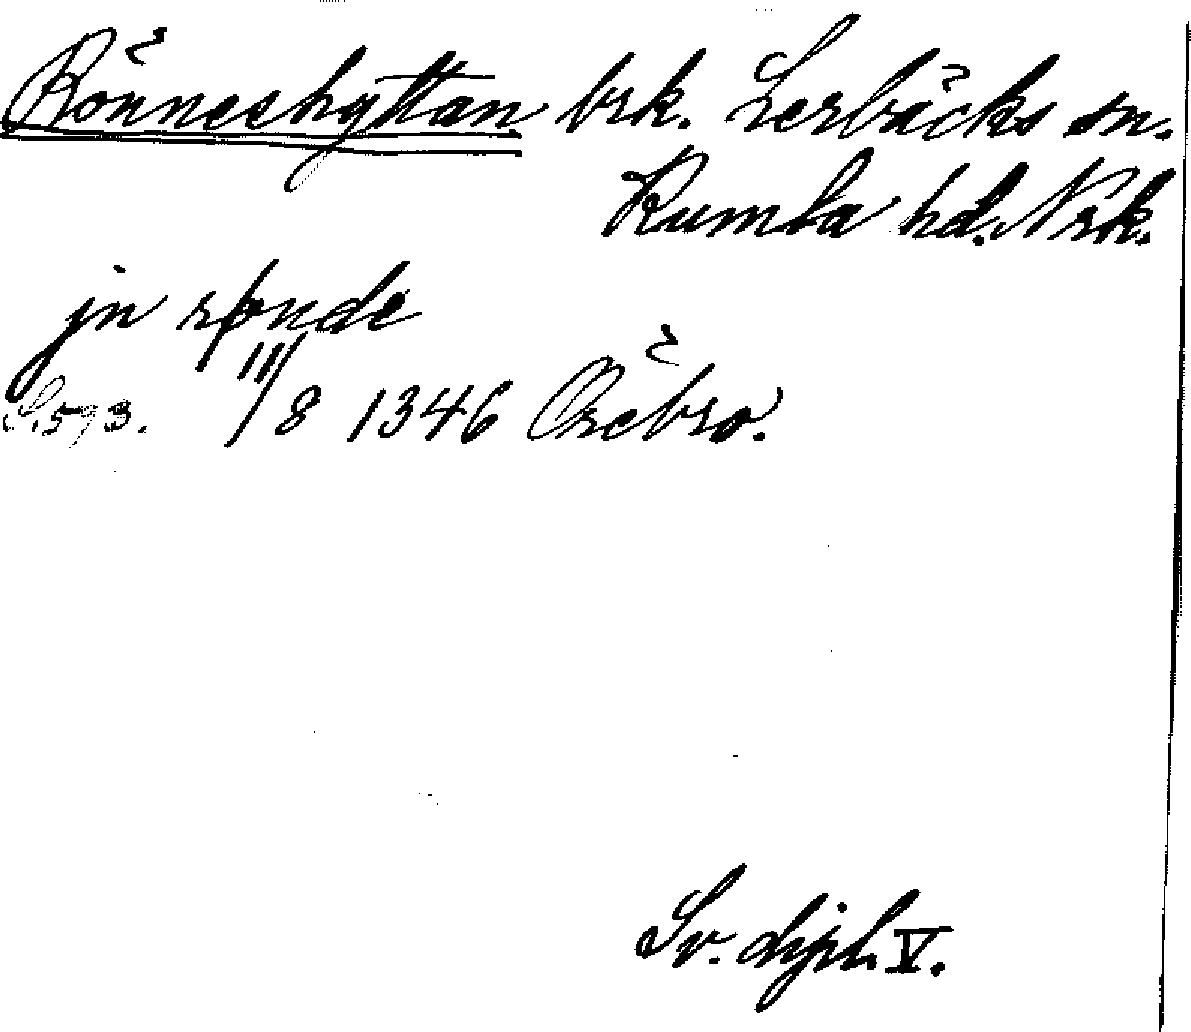 Rönneshyttan brk. Lerbäcks sn.
Kumla hd. Nrk.
jn rønde
S. 593. 11/8 1346 Örebro.
Sv. dipl. V.